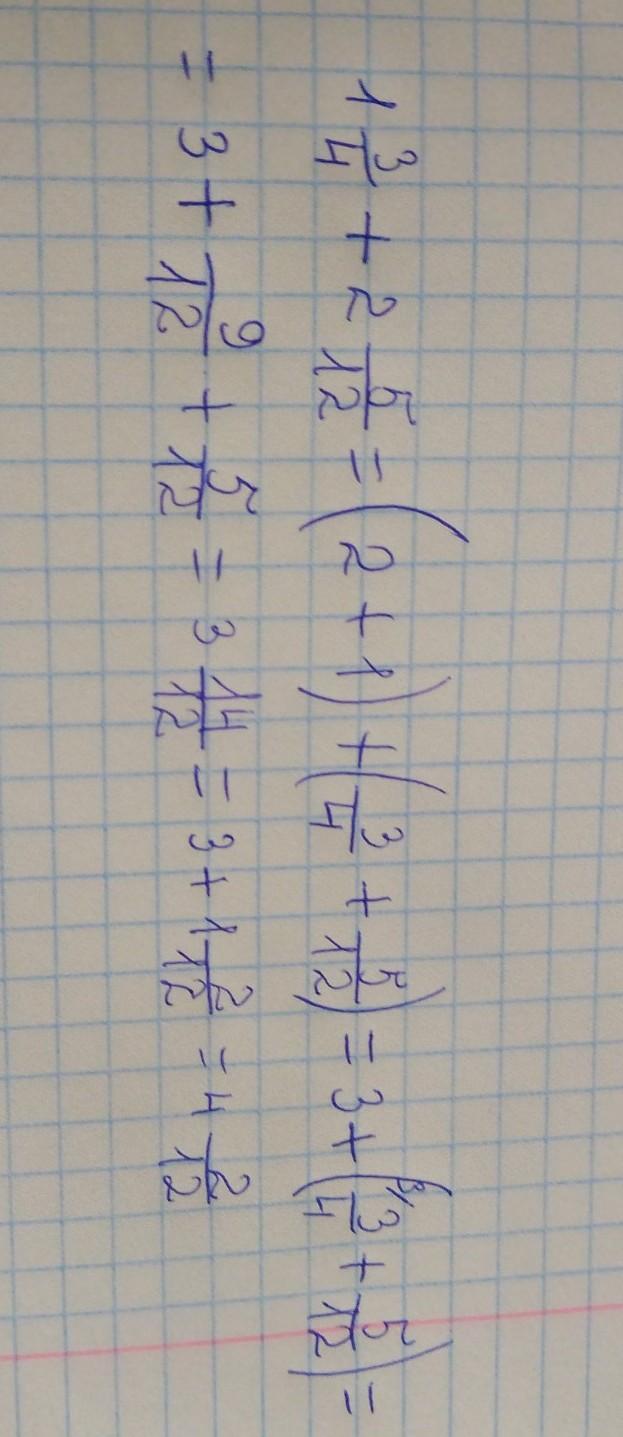 1 3/4 + 2 5/12 = (2 + 1) + (3/4 + 5/12) = 3 + (3\ 3/4 + 5/12) =
= 3 + 9/12 + 5/12 = 3 14/12 = 3 + 1 2/12 = 4 2/12